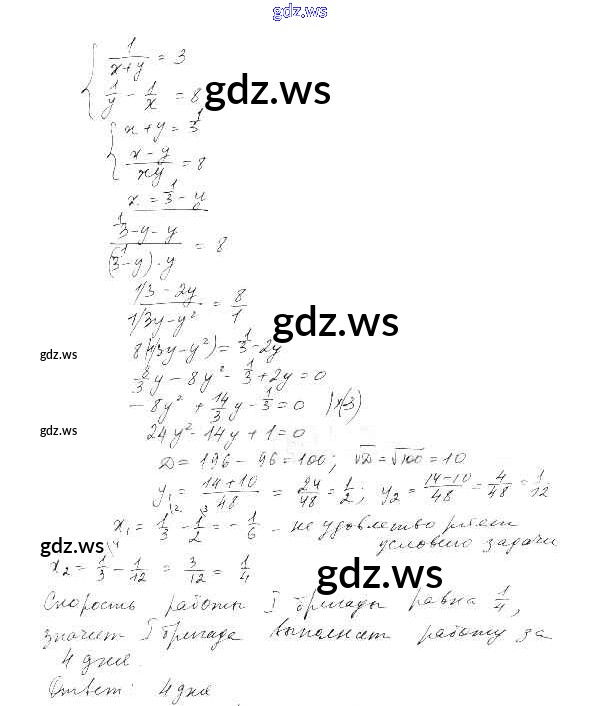 gdz.ws
1/(x+y) = 3
1/y - 1/x = 8
gdz.ws
x + y = 1/3
(x - y)/(xy) = 8
x = 1/3 - y
(1/3 - y - y)/((1/3 - y) · y) = 8
(1/3 - 2y)/(1/3y - y²) = 8/1
gdz.ws
8(1/3y - y²) = 1/3 - 2y
gdz.ws
8/3y - 8y² - 1/3 + 2y = 0
- 8y² + 14/3y - 1/3 = 0 |×(-3)
gdz.ws
24y² - 14y + 1 = 0
D = 196 - 96 = 100; √D = √100 = 10
y₁ = (14+10)/48 = 24/48 = 1/2; y₂ = (14-10)/48 = 4/48 = 1/12
x₁ = 1/3 - 1/2 = - 1/6 - не удовлетворяет
условию задачи
gdz.ws
x₂ = 1/3 - 1/12 = 3/12 = 1/4
gdz.ws
Скорость работы I бригады равна 1/4,
значит I бригада выполнит работу за
4 дня.
Ответ: 4 дня